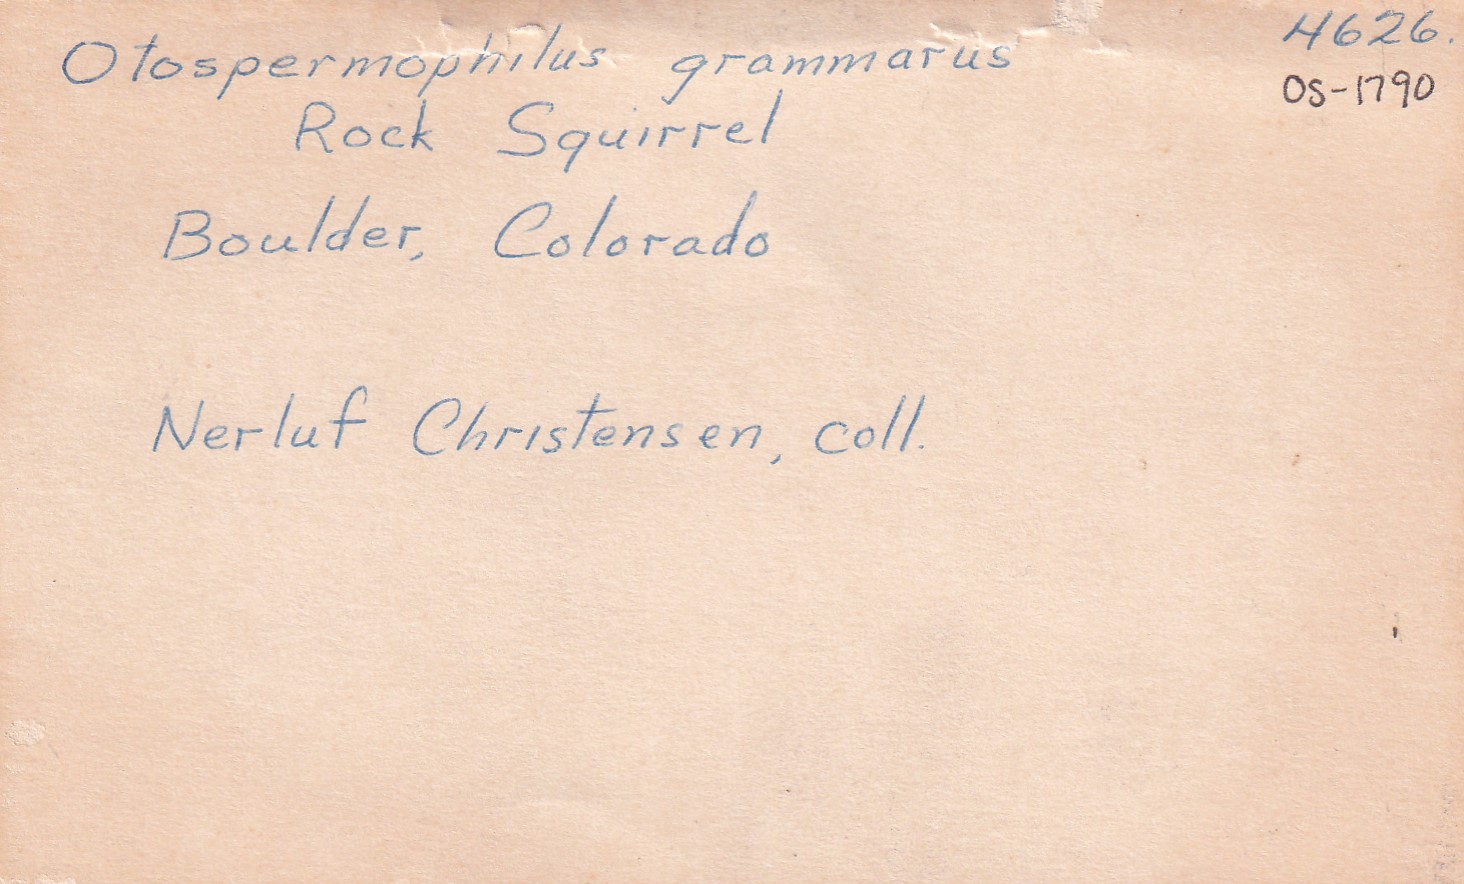 4626.
Otospermophilus grammarus
OS-1790
Rock Squirrel
Boulder, Colorado
Nerluf Christensen, coll.